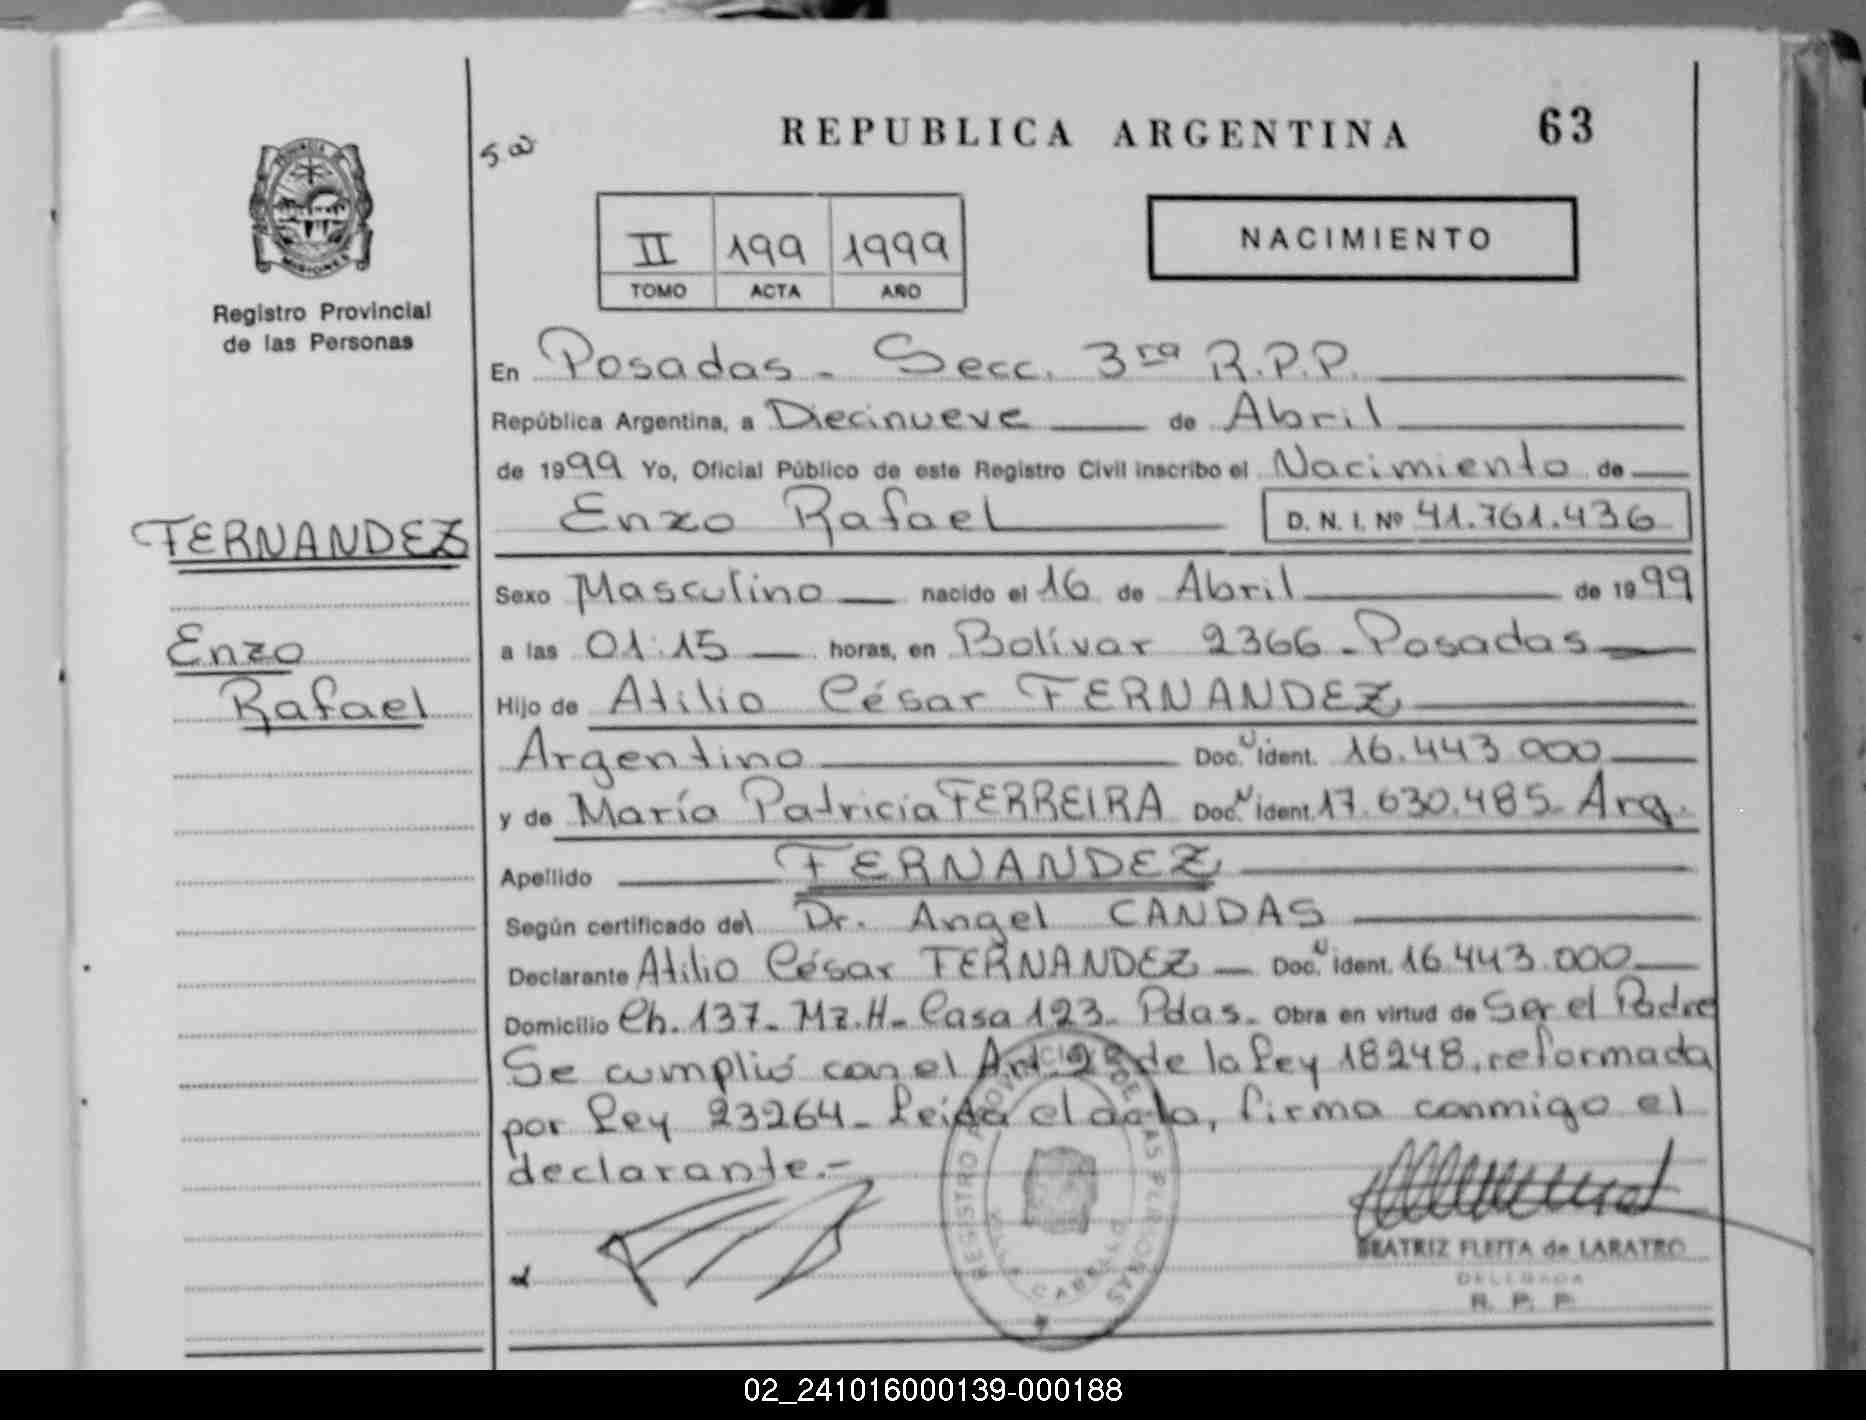 REPUBLICA ARGENTINA 63
PROVINCIA DE
MISIONES
Registro Provincial
de las Personas
II 199 1999
TOMO ACTA AÑO
NACIMIENTO
En Posadas - Secc. 3ra R.P.P.
República Argentina, a Diecinueve de Abril
de 1999 Yo, Oficial Público de este Registro Civil inscribo el Nacimiento de
FERNANDEZ
Enzo Rafael D. N. I. Nº 41.761.436
Sexo Masculino nacido el 16 de Abril de 1999
Enzo
a las 01:15 horas, en Bolívar 2366 - Posadas
Rafael
Hijo de Atilio César FERNANDEZ
Argentino Doc. N ident. 16.443.000
y de María Patricia FERREIRA Doc. N ident. 17.630.485 Arg.
Apellido FERNANDEZ
Según certificado del Dr. Angel CANDAS
Declarante Atilio César FERNANDEZ Doc. N ident. 16.443.000
Domicilio Ch. 137 - Mz. H - Casa 123 - Pdas. Obra en virtud de Ser el Padre
Se cumplió con el Art. 2º de la Ley 18248, reformada
por Ley 23264 - Leída el acta, firma conmigo el
declarante.-
REGISTRO PROVINCIAL DE LAS PERSONAS
VILLA CABELLO
BEATRIZ FLEITA de LARATRO
DELEGADA
R. P. P.
02_241016000139-000188